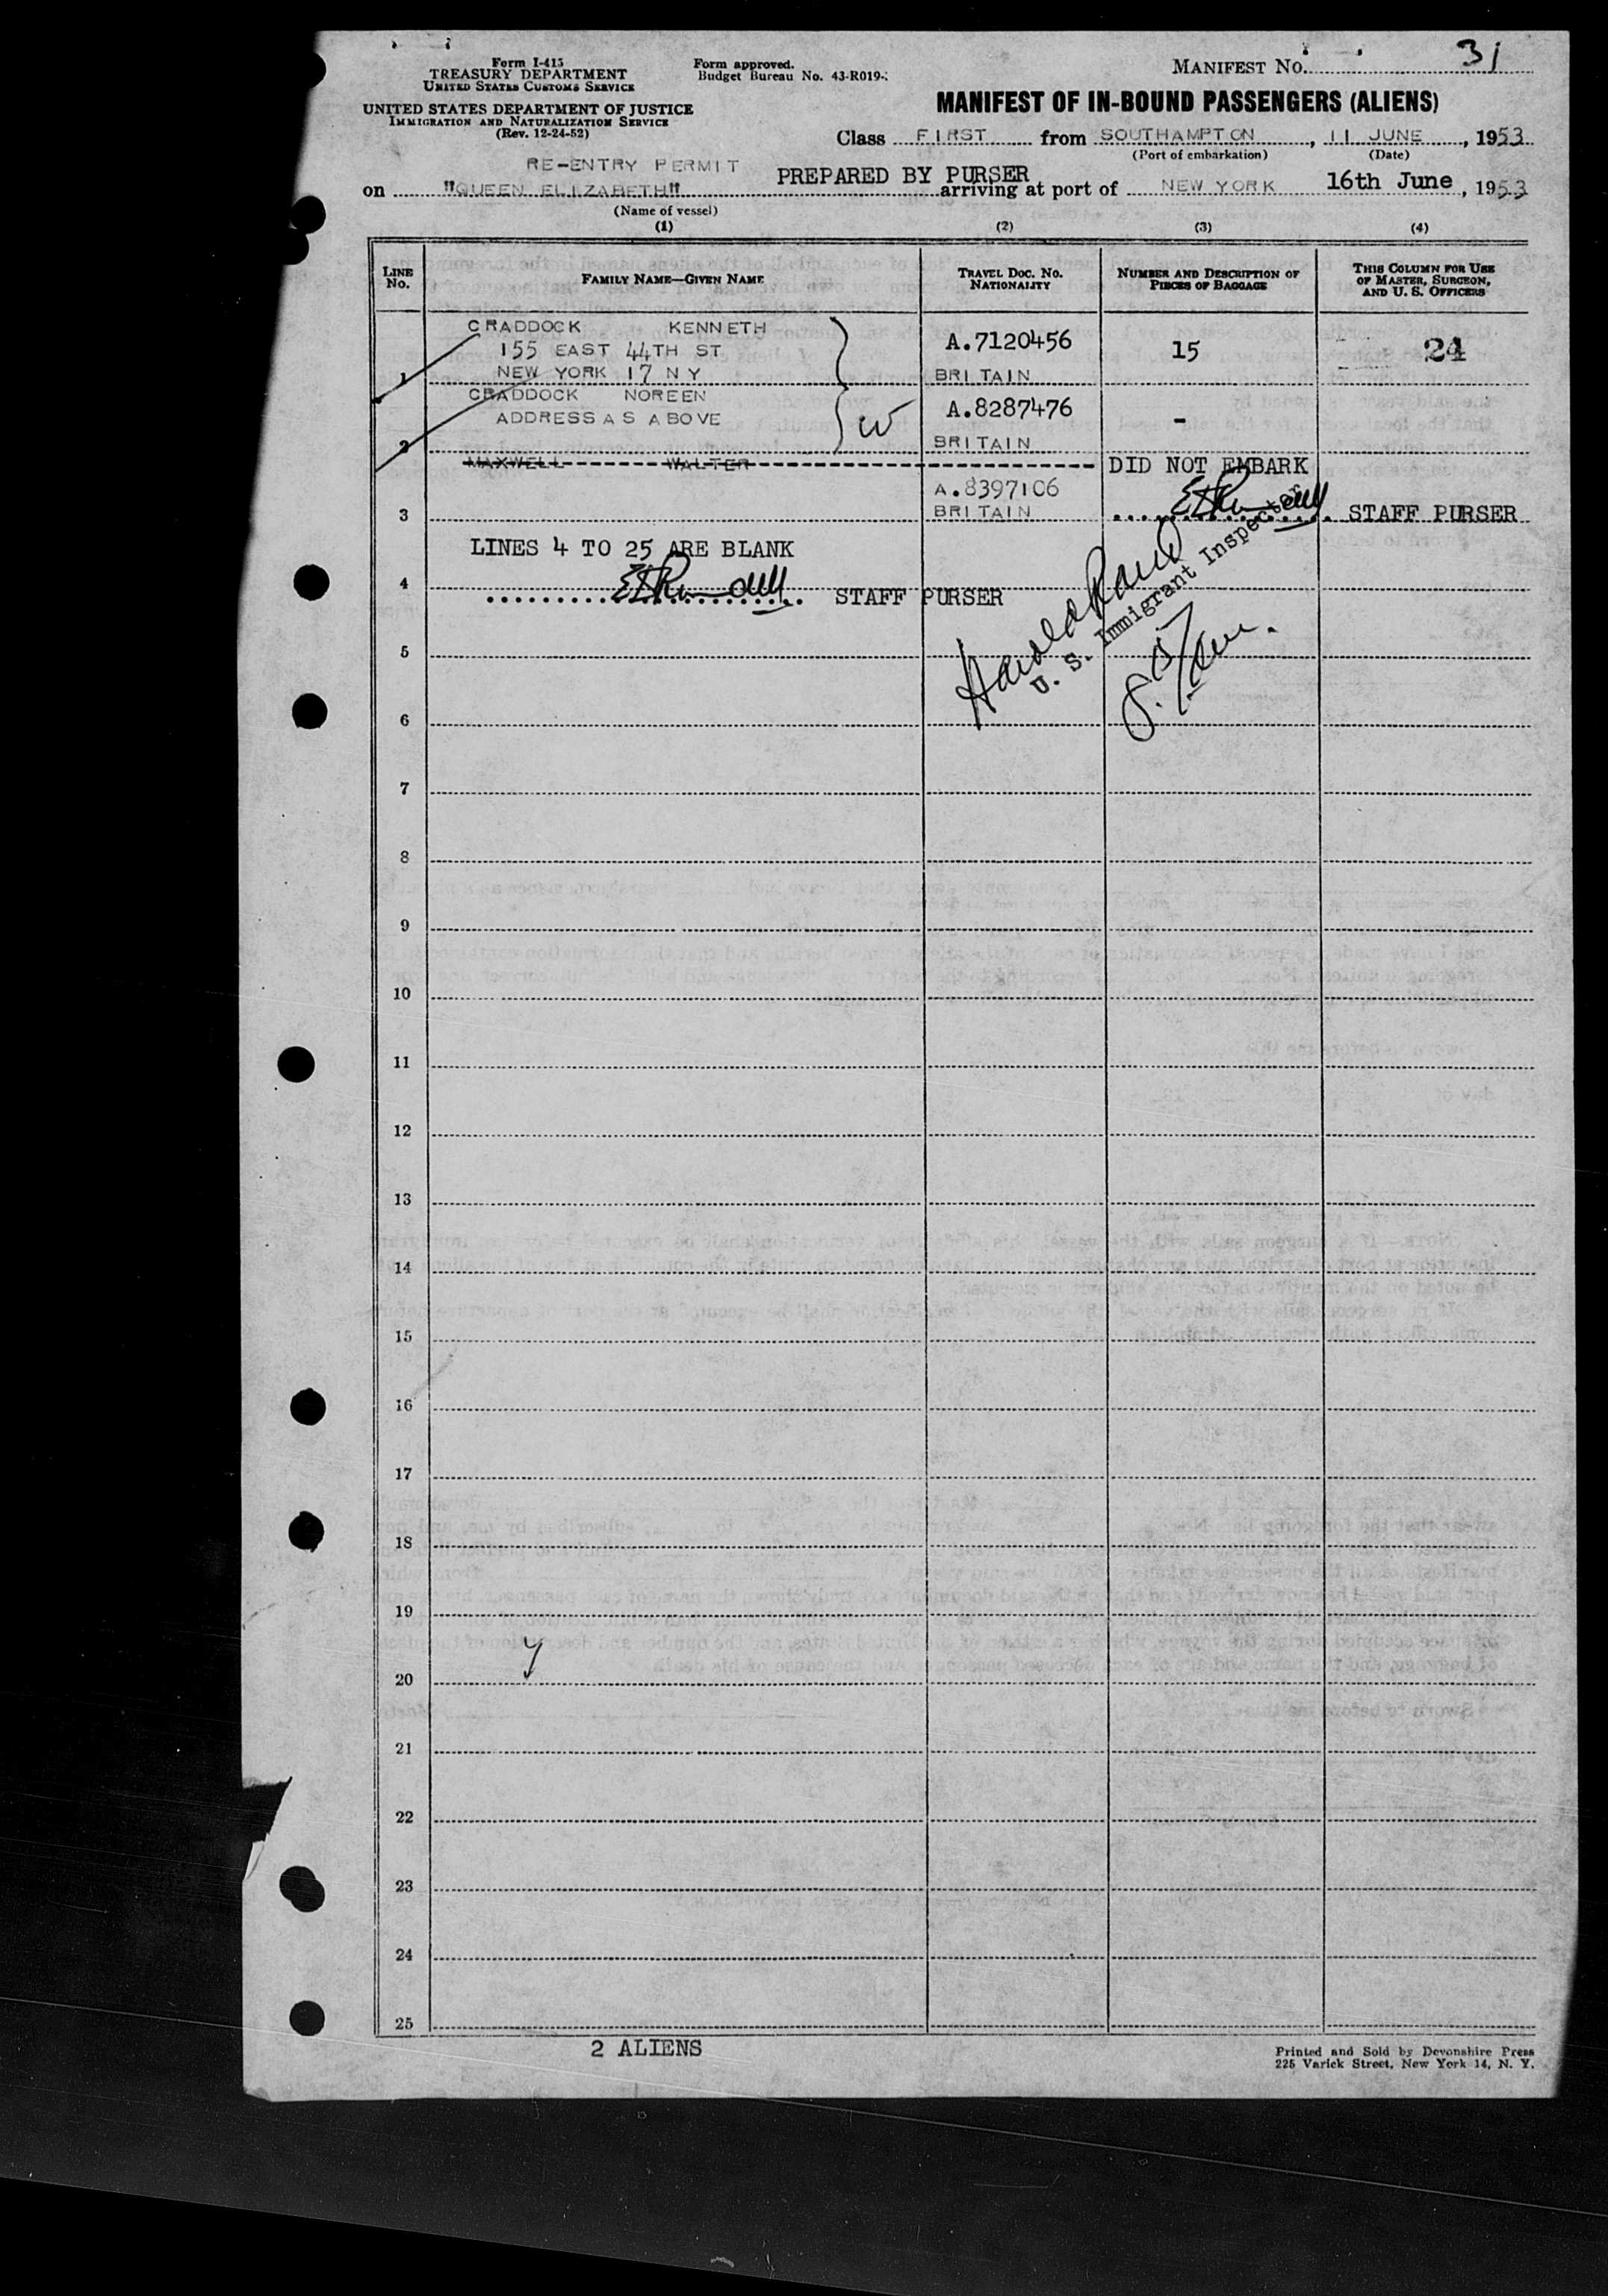 Form I-415
TREASURY DEPARTMENT
UNITED STATES CUSTOMS SERVICE
UNITED STATES DEPARTMENT OF JUSTICE
IMMIGRATION AND NATURALIZATION SERVICE
(Rev. 12-24-52)
Form approved.
Budget Bureau No. 43-R019-
MANIFEST NO. 31
MANIFEST OF IN-BOUND PASSENGERS (ALIENS)
Class FIRST from SOUTHAMPTON, 11 JUNE, 1953
(Port of embarkation) (Date)
RE-ENTRY PERMIT
PREPARED BY PURSER
on "QUEEN ELIZABETH" arriving at port of NEW YORK 16th June, 1953
(Name of vessel)
(1) (2) (3) (4)
LINE No. FAMILY NAME—GIVEN NAME TRAVEL DOC. NO. NATIONALITY NUMBER AND DESCRIPTION OF PIECES OF BAGGAGE THIS COLUMN FOR USE OF MASTER, SURGEON, AND U. S. OFFICERS
CRADDOCK KENNETH
155 EAST 44TH ST A.7120456 15 24
1 NEW YORK 17 N Y BRITAIN
CRADDOCK NOREEN A.8287476 -
ADDRESS AS ABOVE W
2 BRITAIN
MAXWELL WALTER DID NOT EMBARK
A.8397106
3 BRITAIN STAFF PURSER
LINES 4 TO 25 ARE BLANK
4 STAFF PURSER
Harold
U. S. Immigrant Inspector
5
6
7
8
9
10
11
12
13
14
15
16
17
18
19
y
20
21
22
23
24
25
2 ALIENS
Printed and Sold by Devonshire Press
225 Varick Street, New York 14, N. Y.